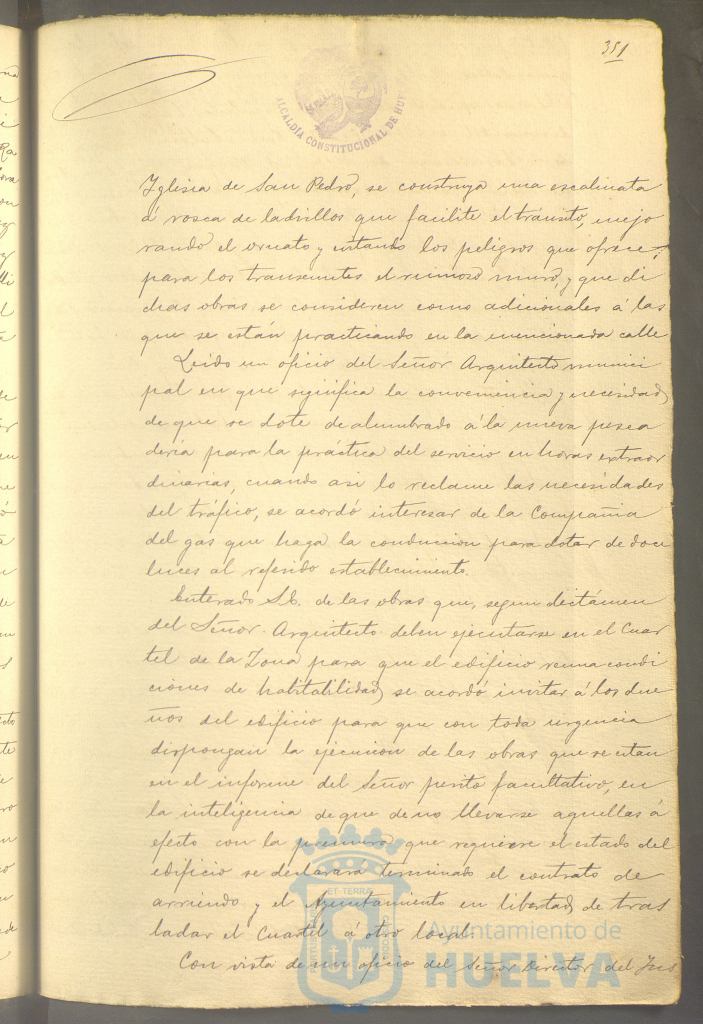 351
ALCALDÍA CONSTITUCIONAL DE HUELVA
Yglesia de San Pedro, se construya una escalinata
á rosca de ladrillos que facilite el tránsito, mejo
rando el ornato y evitando los peligros que ofrece,
para los transeuntes el ruinoso muro, y que di
chas obras se consideren como adicionales á las
que se están practicando en la mencionada calle
Leido un oficio del Señor Arquitecto munici
pal en que significa la conveniencia y necesidad
de que se dote de alumbrado á la nueva pesca
dería para la práctica del servicio en horas extraor
dinarias, cuando asi lo reclame las necesidades
del tráfico, se acordó interesar de la Compañia
del gas que haga la conduccion para dotar de doce
luces al referido establecimiento.
Enterado S.E. de las obras que, segun dictámen
del Señor Arquitecto deben ejecutarse en el Cuar
tel de la Zona para que el edificio reuna condi
ciones de habitabilidad, se acordó invitar á los due
ños del edificio para que con toda urgencia
dispongan la ejecucion de las obras que se citan
en el informe del Señor perito facultativo, en
la inteligencia de que de no llevarse aquellas á
efecto con la premura que requiere el estado del
edificio se declarará terminado el contrato de
arriendo y el Ayuntamiento en libertad de tras
ladar el Cuartel á otro local.
Con vista de un oficio del Señor Director del Ins
Ayuntamiento de
HUELVA